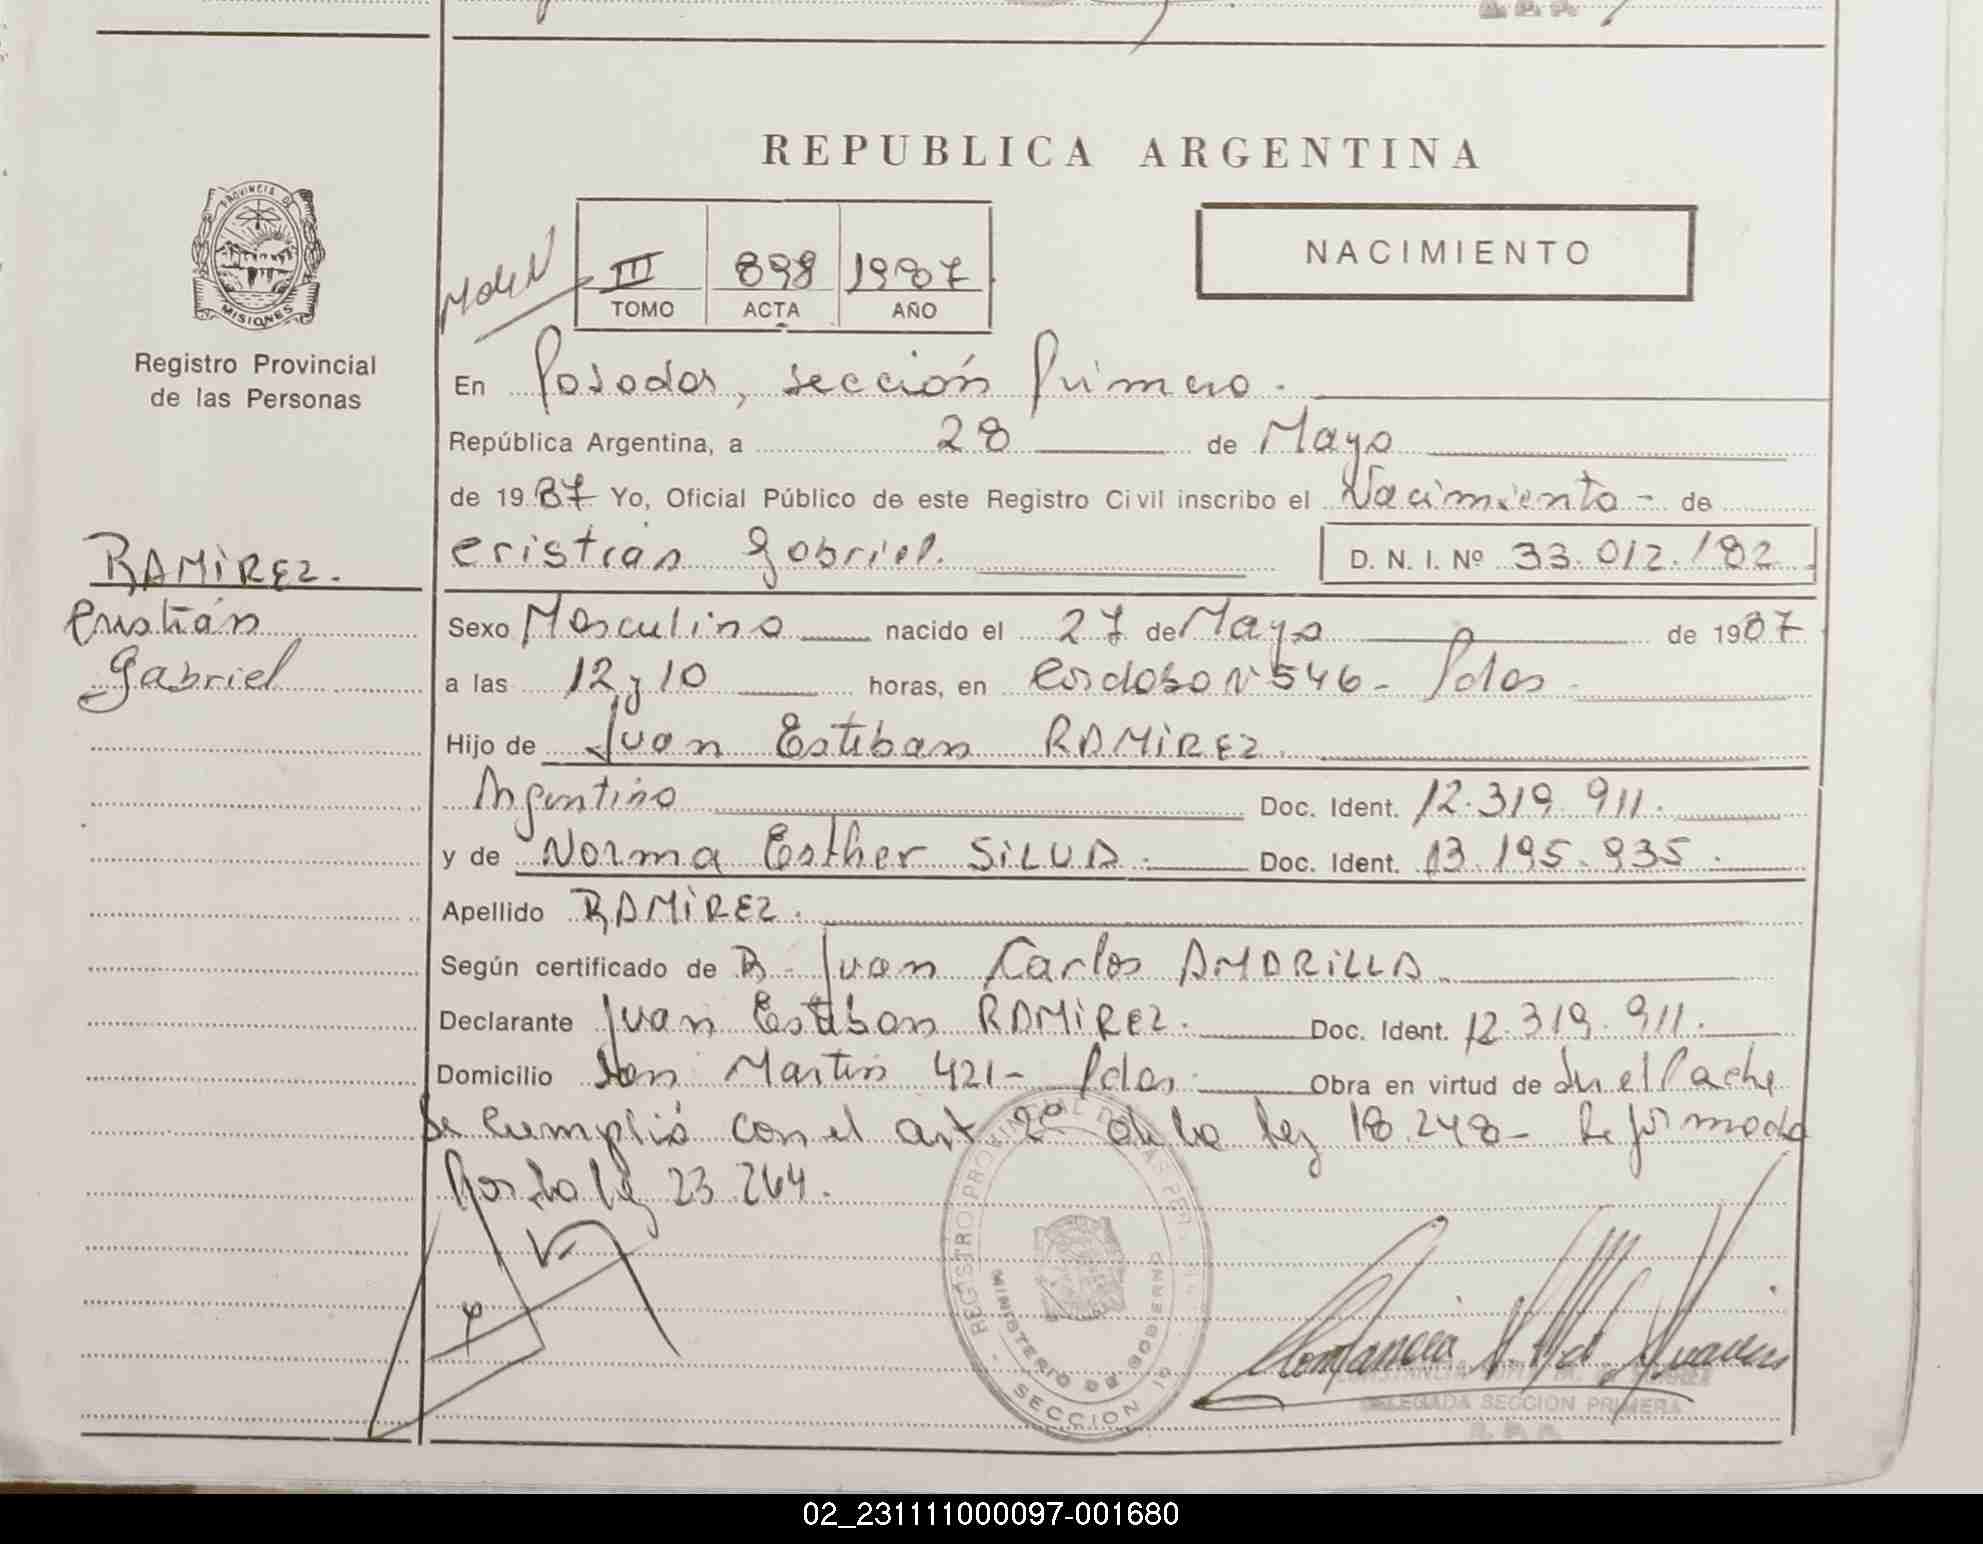 REPUBLICA ARGENTINA
PROVINCIA DE
MISIONES
Registro Provincial
de las Personas
III 898 1987
TOMO ACTA AÑO
NACIMIENTO
En Posadas, sección Primera.
República Argentina, a 28 de Mayo
de 1987 Yo, Oficial Público de este Registro Civil inscribo el Nacimiento - de
Cristian Gabriel. D. N. I. Nº 33.012.182
RAMIREZ.
Cristian
Gabriel
Sexo Masculino nacido el 27 de Mayo de 1987
a las 12 y 10 horas, en Cordoba Nº 546 - Pdas.
Hijo de Juan Esteban RAMIREZ.
Argentino Doc. Ident. 12.319.911.
y de Norma Esther SILVA. Doc. Ident. 13.195.935.
Apellido RAMIREZ.
Según certificado de Juan Carlos AMARILLA
Declarante Juan Esteban RAMIREZ. Doc. Ident. 12.319.911.
Domicilio San Martin 421 - Pdas. Obra en virtud de
Se Cumplió con el art 2º de la ley 18.248 - Reformada
Por la ley 23.264.
REGISTRO PROVINCIAL DE LAS PERSONAS
MINISTERIO DE GOBIERNO
SECCION 1ª
DELEGADA SECCION PRIMERA
02_231111000097-001680